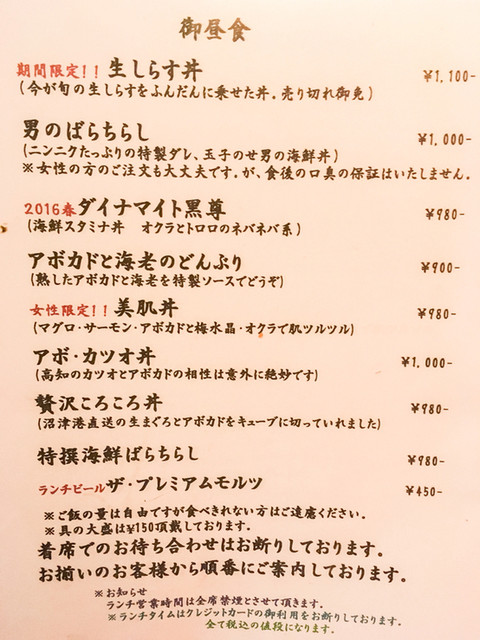 御昼食
期間限定!! 生しらす丼 ¥1,100-
(今が旬の生しらすをふんだんに乗せた丼。売り切れ御免)
男のばらちらし ¥1,000-
(ニンニクたっぷりの特製ダレ、玉子のせ男の海鮮丼)
※女性の方のご注文も大丈夫です。が、食後の口臭の保証はいたしません。
2016春ダイナマイト黒尊 ¥980-
(海鮮スタミナ丼 オクラとトロロのネバネバ系)
アボカドと海老のどんぶり ¥900-
(熟したアボカドと海老を特製ソースでどうぞ)
女性限定!! 美肌丼 ¥980-
(マグロ・サーモン・アボカドと梅水晶・オクラで肌ツルツル)
アボ・カツオ丼 ¥1,000-
(高知のカツオとアボカドの相性は意外に絶妙です)
贅沢ころころ丼 ¥980-
(沼津港直送の生まぐろとアボカドをキューブに切っていれました)
特撰海鮮ばらちらし ¥980-
ランチビール ザ・プレミアムモルツ ¥450-
※ご飯の量は自由ですが食べきれない方はご遠慮ください。
※具の大盛は¥150頂戴しております。
着席でのお待ち合わせはお断りしております。
お揃いのお客様から順番にご案内しております。
※お知らせ
ランチ営業時間は全席禁煙とさせて頂きます。
※ランチタイムはクレジットカードの御利用をお断りしております。
全て税込の値段になります。